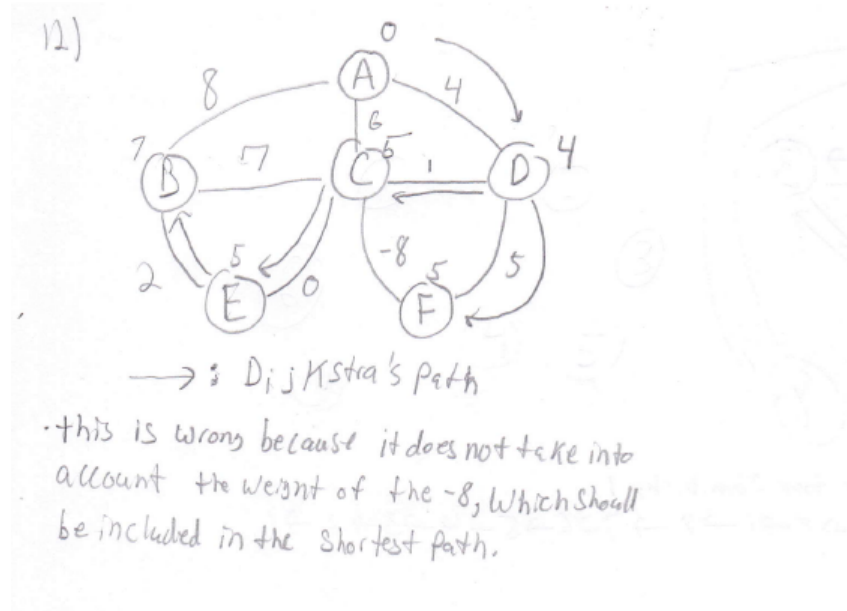 12)
0
A
8
4
6
7
B
7
C
5
1
D
4
2
5
E
0
-8
5
F
5
→ : Dijkstra's path
• this is wrong because it does not take into
account the weight of the -8, which should
be included in the shortest path.